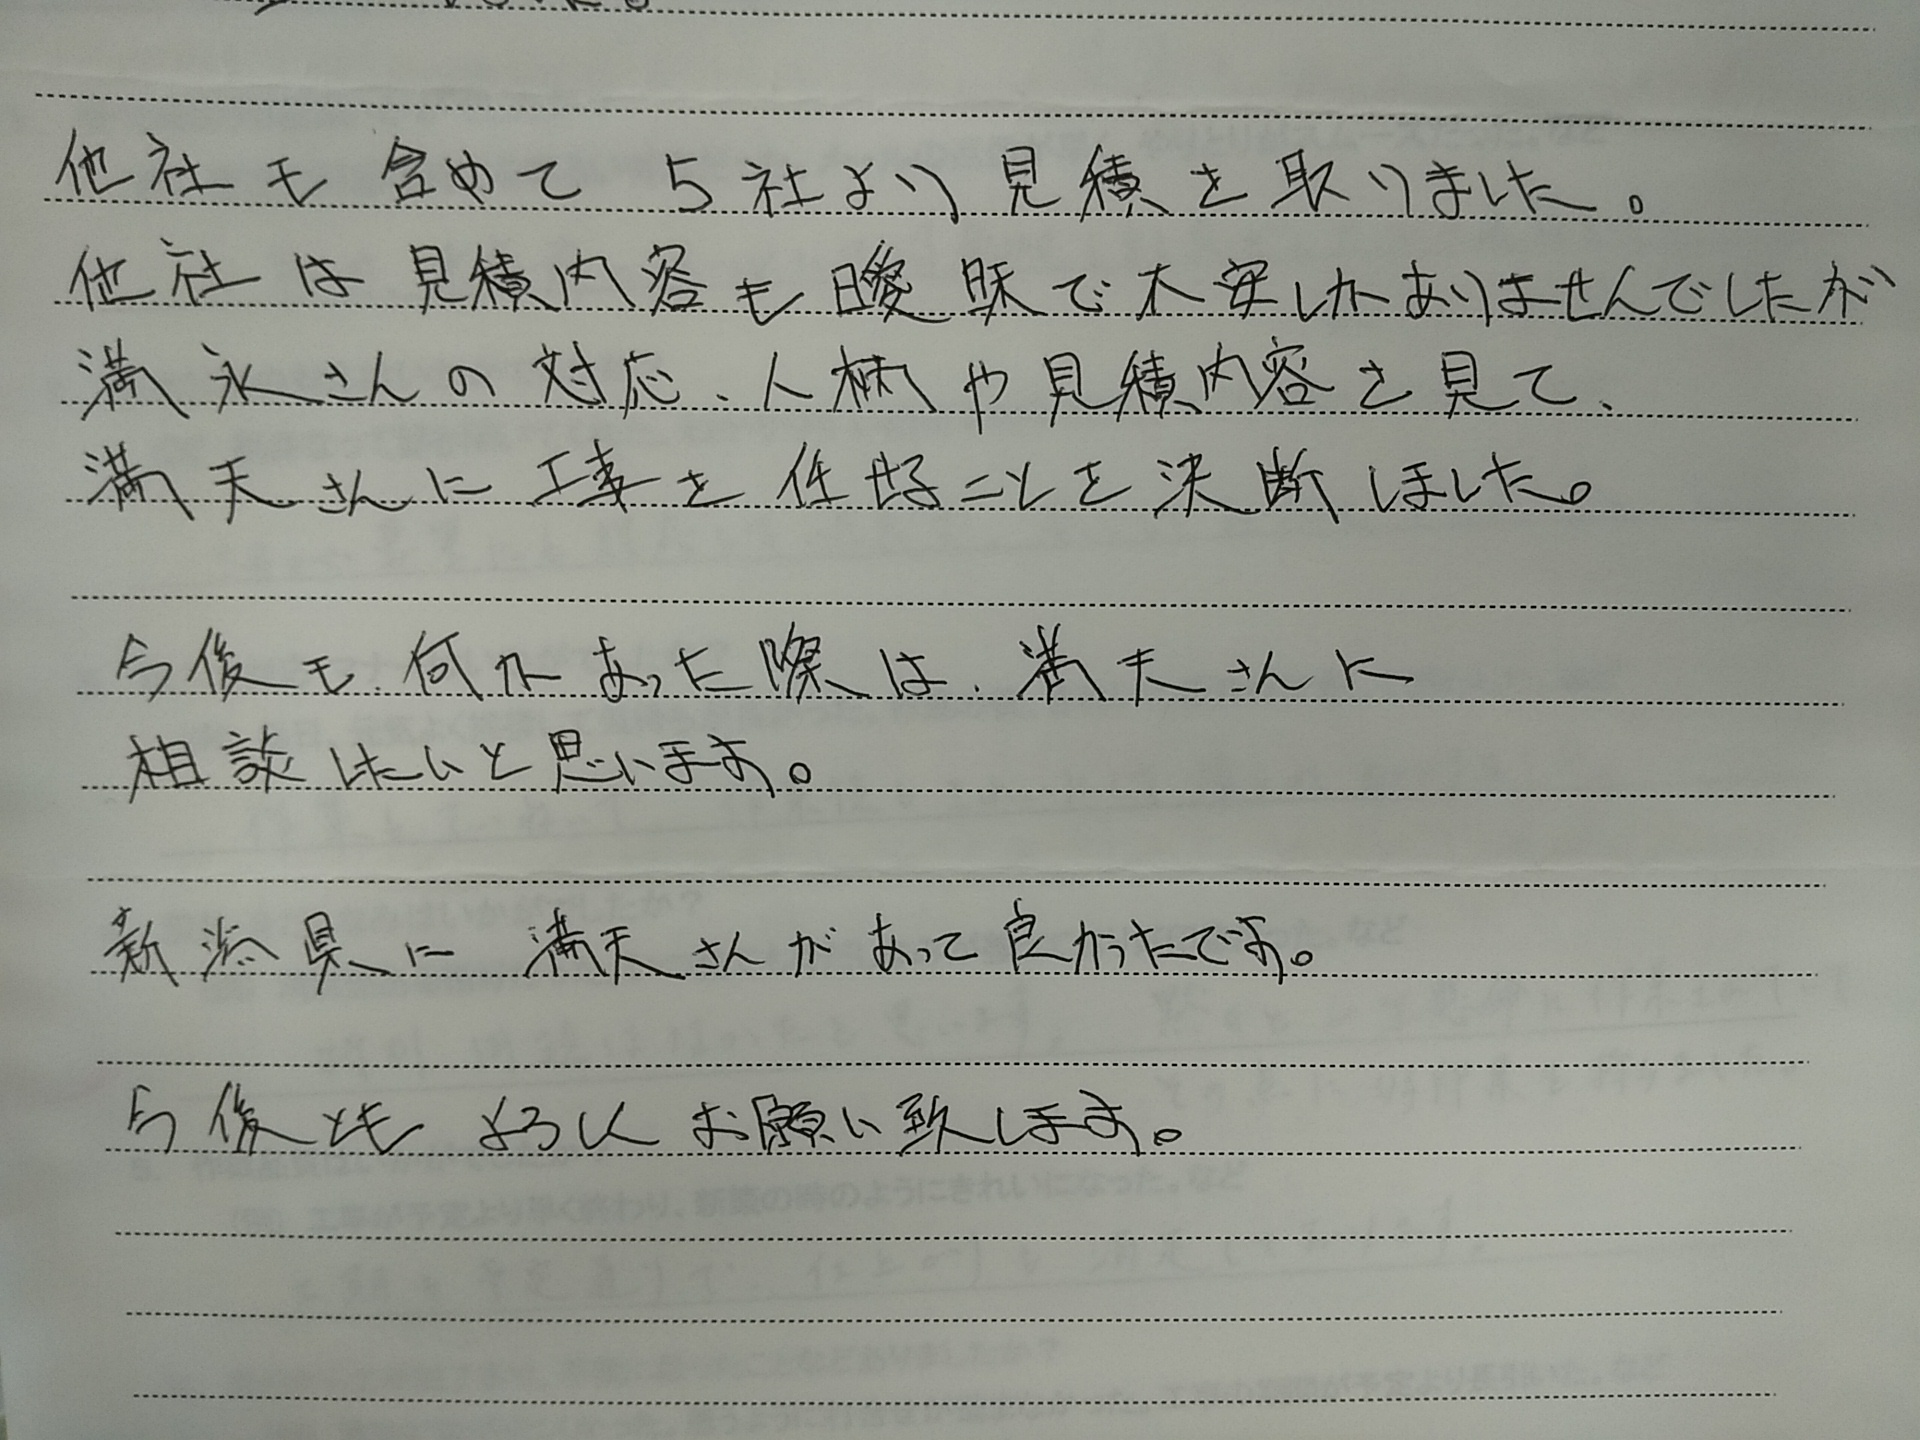 他社も含めて5社より見積を取りました。
他社は見積内容も曖昧で不安しかありませんでしたが
満永さんの対応、人柄や見積内容を見て、
満天さんに工事を任せることを決断しました。
今後も、何かあった際は、満天さんに
相談したいと思います。
新潟県に満天さんがあって良かったです。
今後ともよろしくお願い致します。